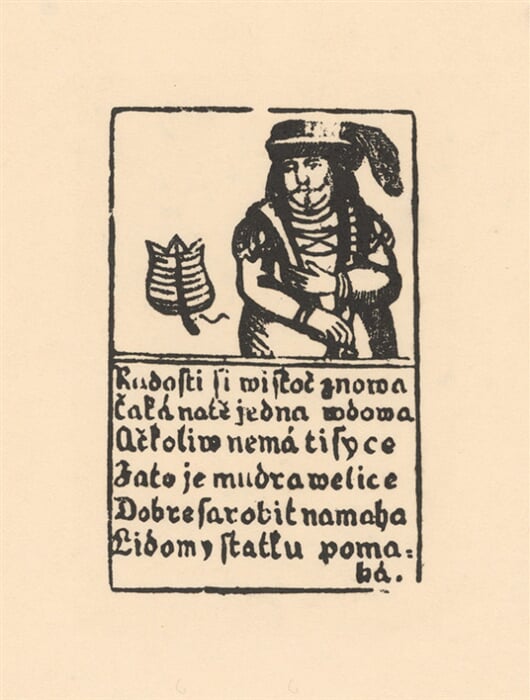 Radosti si wiskoč znowa
čaká natě jedna wdowa
Ačkoliw nemá tisyce
Zato je mudra welice
Dobre sa robit namaha
Lidom y statku poma=
há.